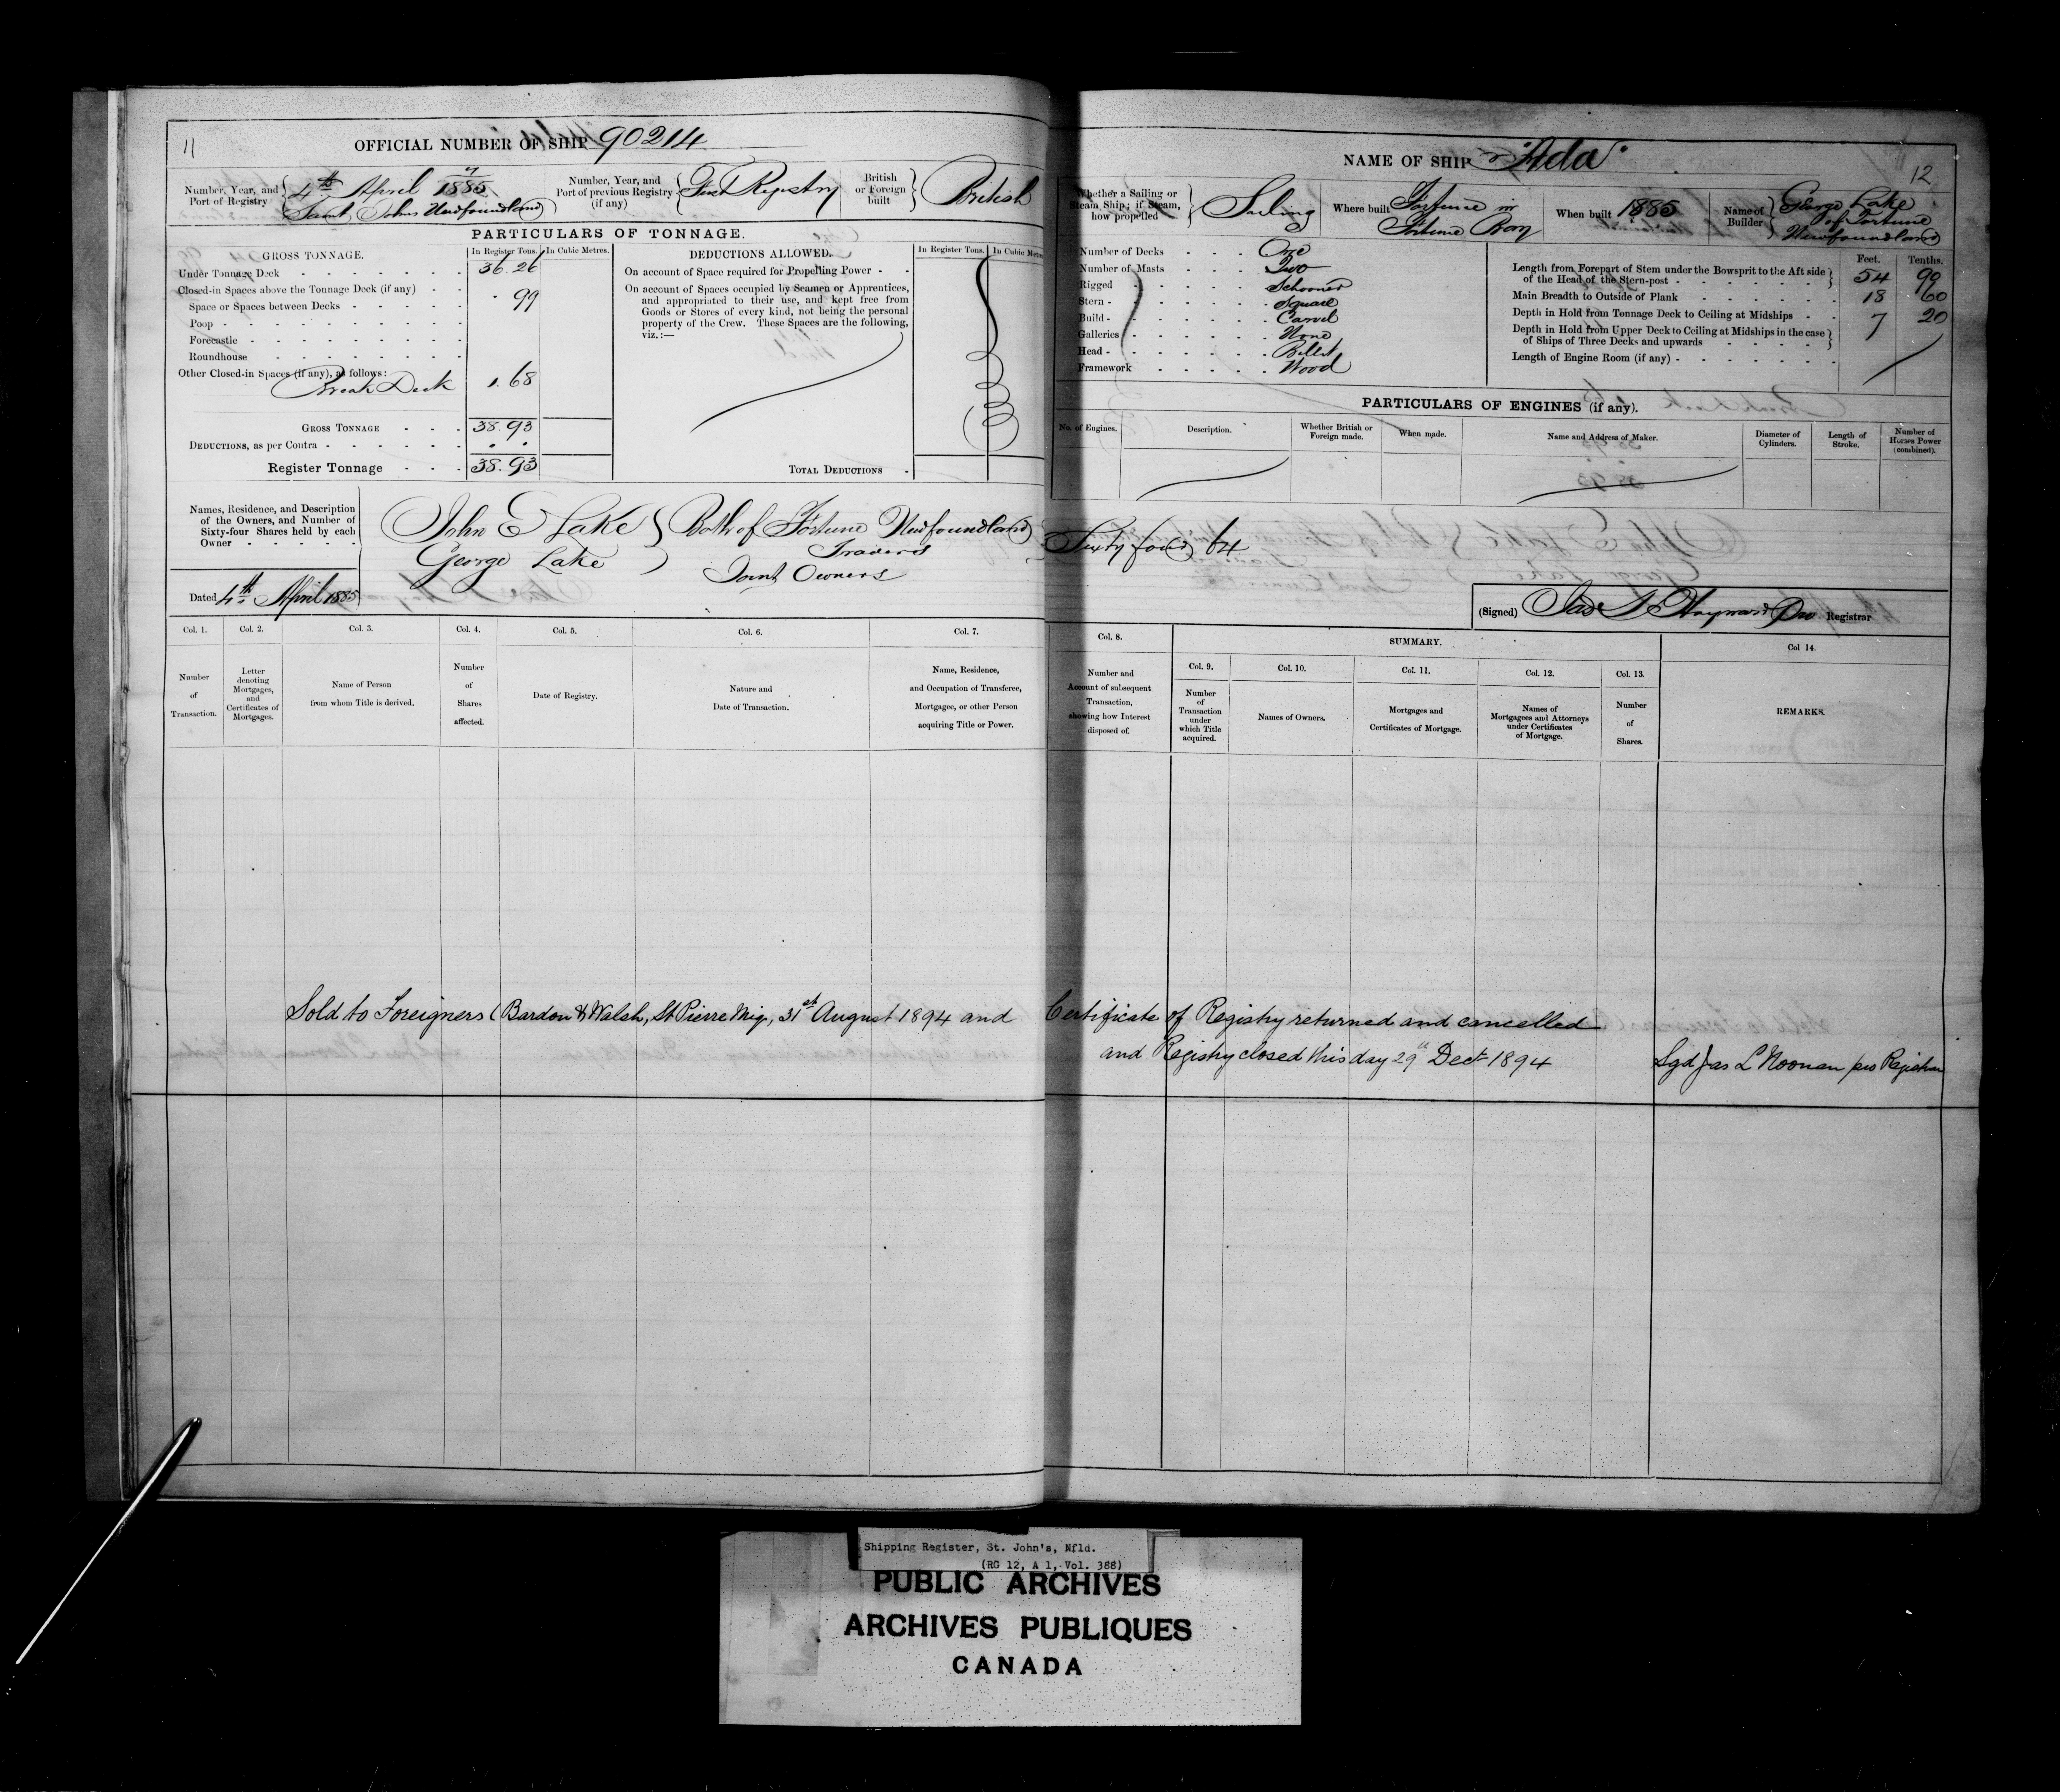 11
OFFICIAL NUMBER OF SHIP 90214
Number, Year, and Port of Registry
7
4th April 1885
Saint Johns Newfoundland
Number, Year, and Port of previous Registry (if any)
First Registry
British or Foreign built
British
PARTICULARS OF TONNAGE.
GROSS TONNAGE.
In Register Tons.
In Cubic Metres.
Under Tonnage Deck 36.26
Closed-in Spaces above the Tonnage Deck (if any)
Space or Spaces between Decks . 99
Poop
Forecastle
Roundhouse
Other Closed-in Spaces (if any), as follows:
Break Deck 1.68
GROSS TONNAGE 38.93
DEDUCTIONS, as per Contra
Register Tonnage 38.93
DEDUCTIONS ALLOWED.
In Register Tons.
In Cubic Metres
On account of Space required for Propelling Power
On account of Spaces occupied by Seamen or Apprentices,
and appropriated to their use, and kept free from
Goods or Stores of every kind, not being the personal
property of the Crew. These Spaces are the following,
viz.:—
TOTAL DEDUCTIONS
Names, Residence, and Description
of the Owners, and Number of
Sixty-four Shares held by each
Owner
John E Lake } Both of Fortune Newfoundland
George Lake Traders
Joint Owners
Dated 4th April 1885
Col. 1.
Number
of
Transaction.
Col. 2.
Letter
denoting
Mortgages,
and
Certificates of
Mortgages.
Col. 3.
Name of Person
from whom Title is derived.
Col. 4.
Number
of
Shares
affected.
Col. 5.
Date of Registry.
Col. 6.
Nature and
Date of Transaction.
Col. 7.
Name, Residence,
and Occupation of Transferee,
Mortgagee, or other Person
acquiring Title or Power.
Sold to Foreigners (Bardon & Walsh, St Pierre Miq, 31st August 1894 and
NAME OF SHIP "Ada"
12
Whether a Sailing or
Steam Ship; if Steam,
how propelled
Sailing
Where built
Fortune in
Fortune Bay
When built 1885
Name of
Builder
George Lake
of Fortune
Newfoundland
Number of Decks One
Number of Masts Two
Rigged Schooner
Stern Square
Build Carvel
Galleries None
Head Billet
Framework Wood
Feet. Tenths.
Length from Forepart of Stem under the Bowsprit to the Aft side
of the Head of the Stern-post 54 90
Main Breadth to Outside of Plank 18 60
Depth in Hold from Tonnage Deck to Ceiling at Midships 7 20
Depth in Hold from Upper Deck to Ceiling at Midships in the case
of Ships of Three Decks and upwards
Length of Engine Room (if any)
PARTICULARS OF ENGINES (if any).
No. of Engines.
Description.
Whether British or
Foreign made.
When made.
Name and Address of Maker.
Diameter of
Cylinders.
Length of
Stroke.
Number of
Horses Power
(combined).
Sixty four 64
(Signed) Hayward Pro Registrar
Col. 8.
Number and
Account of subsequent
Transaction,
showing how Interest
disposed of.
SUMMARY.
Col. 9.
Number
of
Transaction
under
which Title
acquired.
Col. 10.
Names of Owners.
Col. 11.
Mortgages and
Certificates of Mortgage.
Col. 12.
Names of
Mortgagees and Attorneys
under Certificates
of Mortgage.
Col. 13.
Number
of
Shares.
Col 14.
REMARKS.
Certificate of Registry returned and cancelled
and Registry closed this day 29th Decr 1894
Sgd Jas L Noonan pro Registrar
Shipping Register, St. John's, Nfld.
(RG 12, A 1, Vol. 388)
PUBLIC ARCHIVES
ARCHIVES PUBLIQUES
CANADA